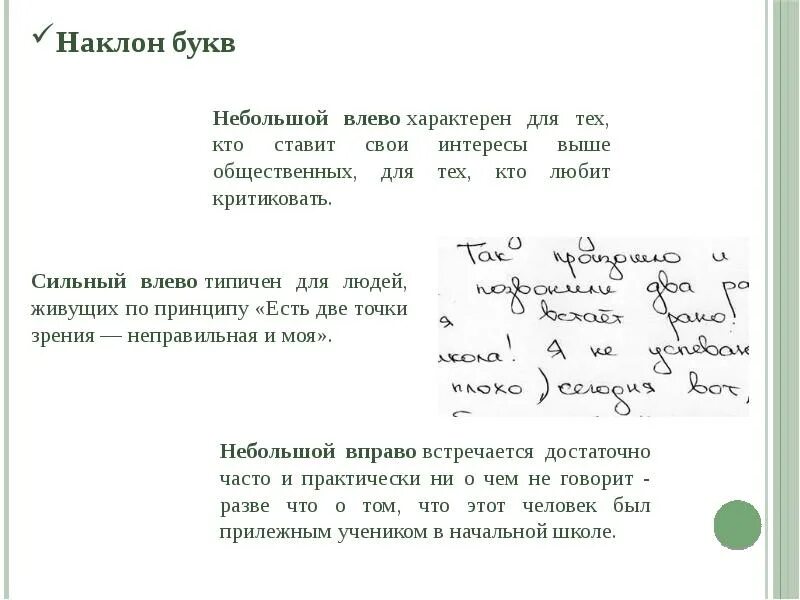 Наклон букв
Небольшой влево характерен для тех,
кто ставит свои интересы выше
общественных, для тех, кто любит
критиковать.
Сильный влево типичен для людей,
живущих по принципу «Есть две точки
зрения — неправильная и моя».
Так произошло и
позвонили два ра
я встаёт рано!
школа! Я не успеваю
плохо) сегодня вот,
Небольшой вправо встречается достаточно
часто и практически ни о чем не говорит -
разве что о том, что этот человек был
прилежным учеником в начальной школе.